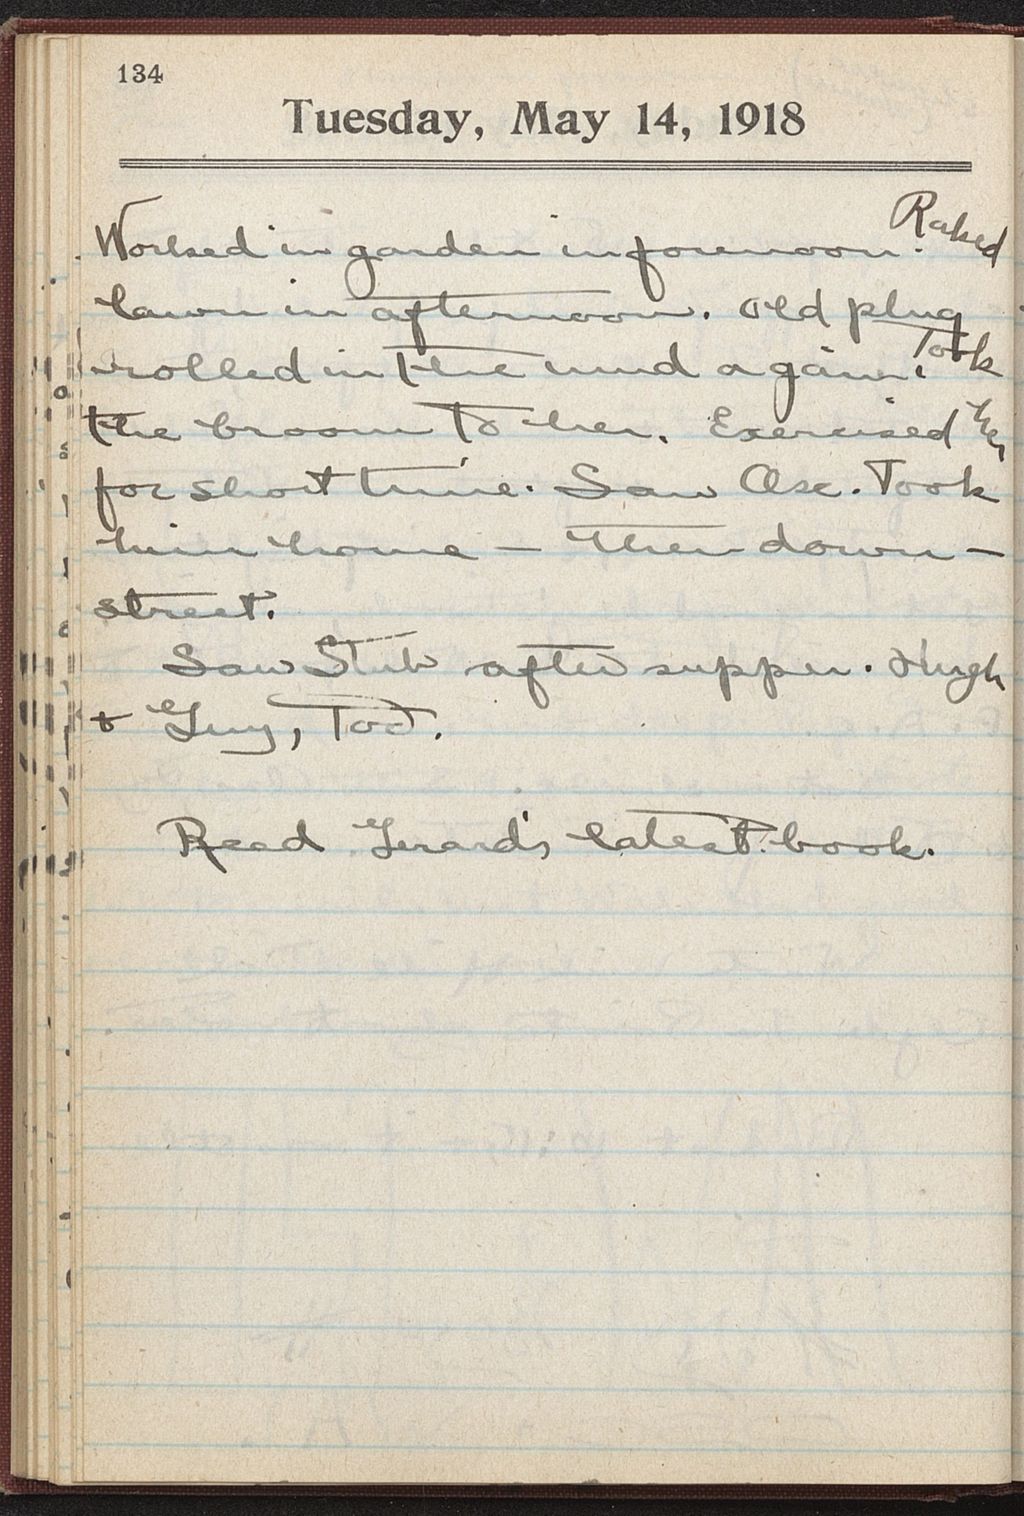 134
Tuesday, May 14, 1918
Worked in garden in forenoon. Raked
lawn in afternoon. Old plug
rolled in the mud again. Took
the broom to her. Exercised her
for short time. Saw Ose. Took
him home — then down-
street.
Saw Stub after supper. Hugh
+ Guy, Too.
Read Gerard's latest book.